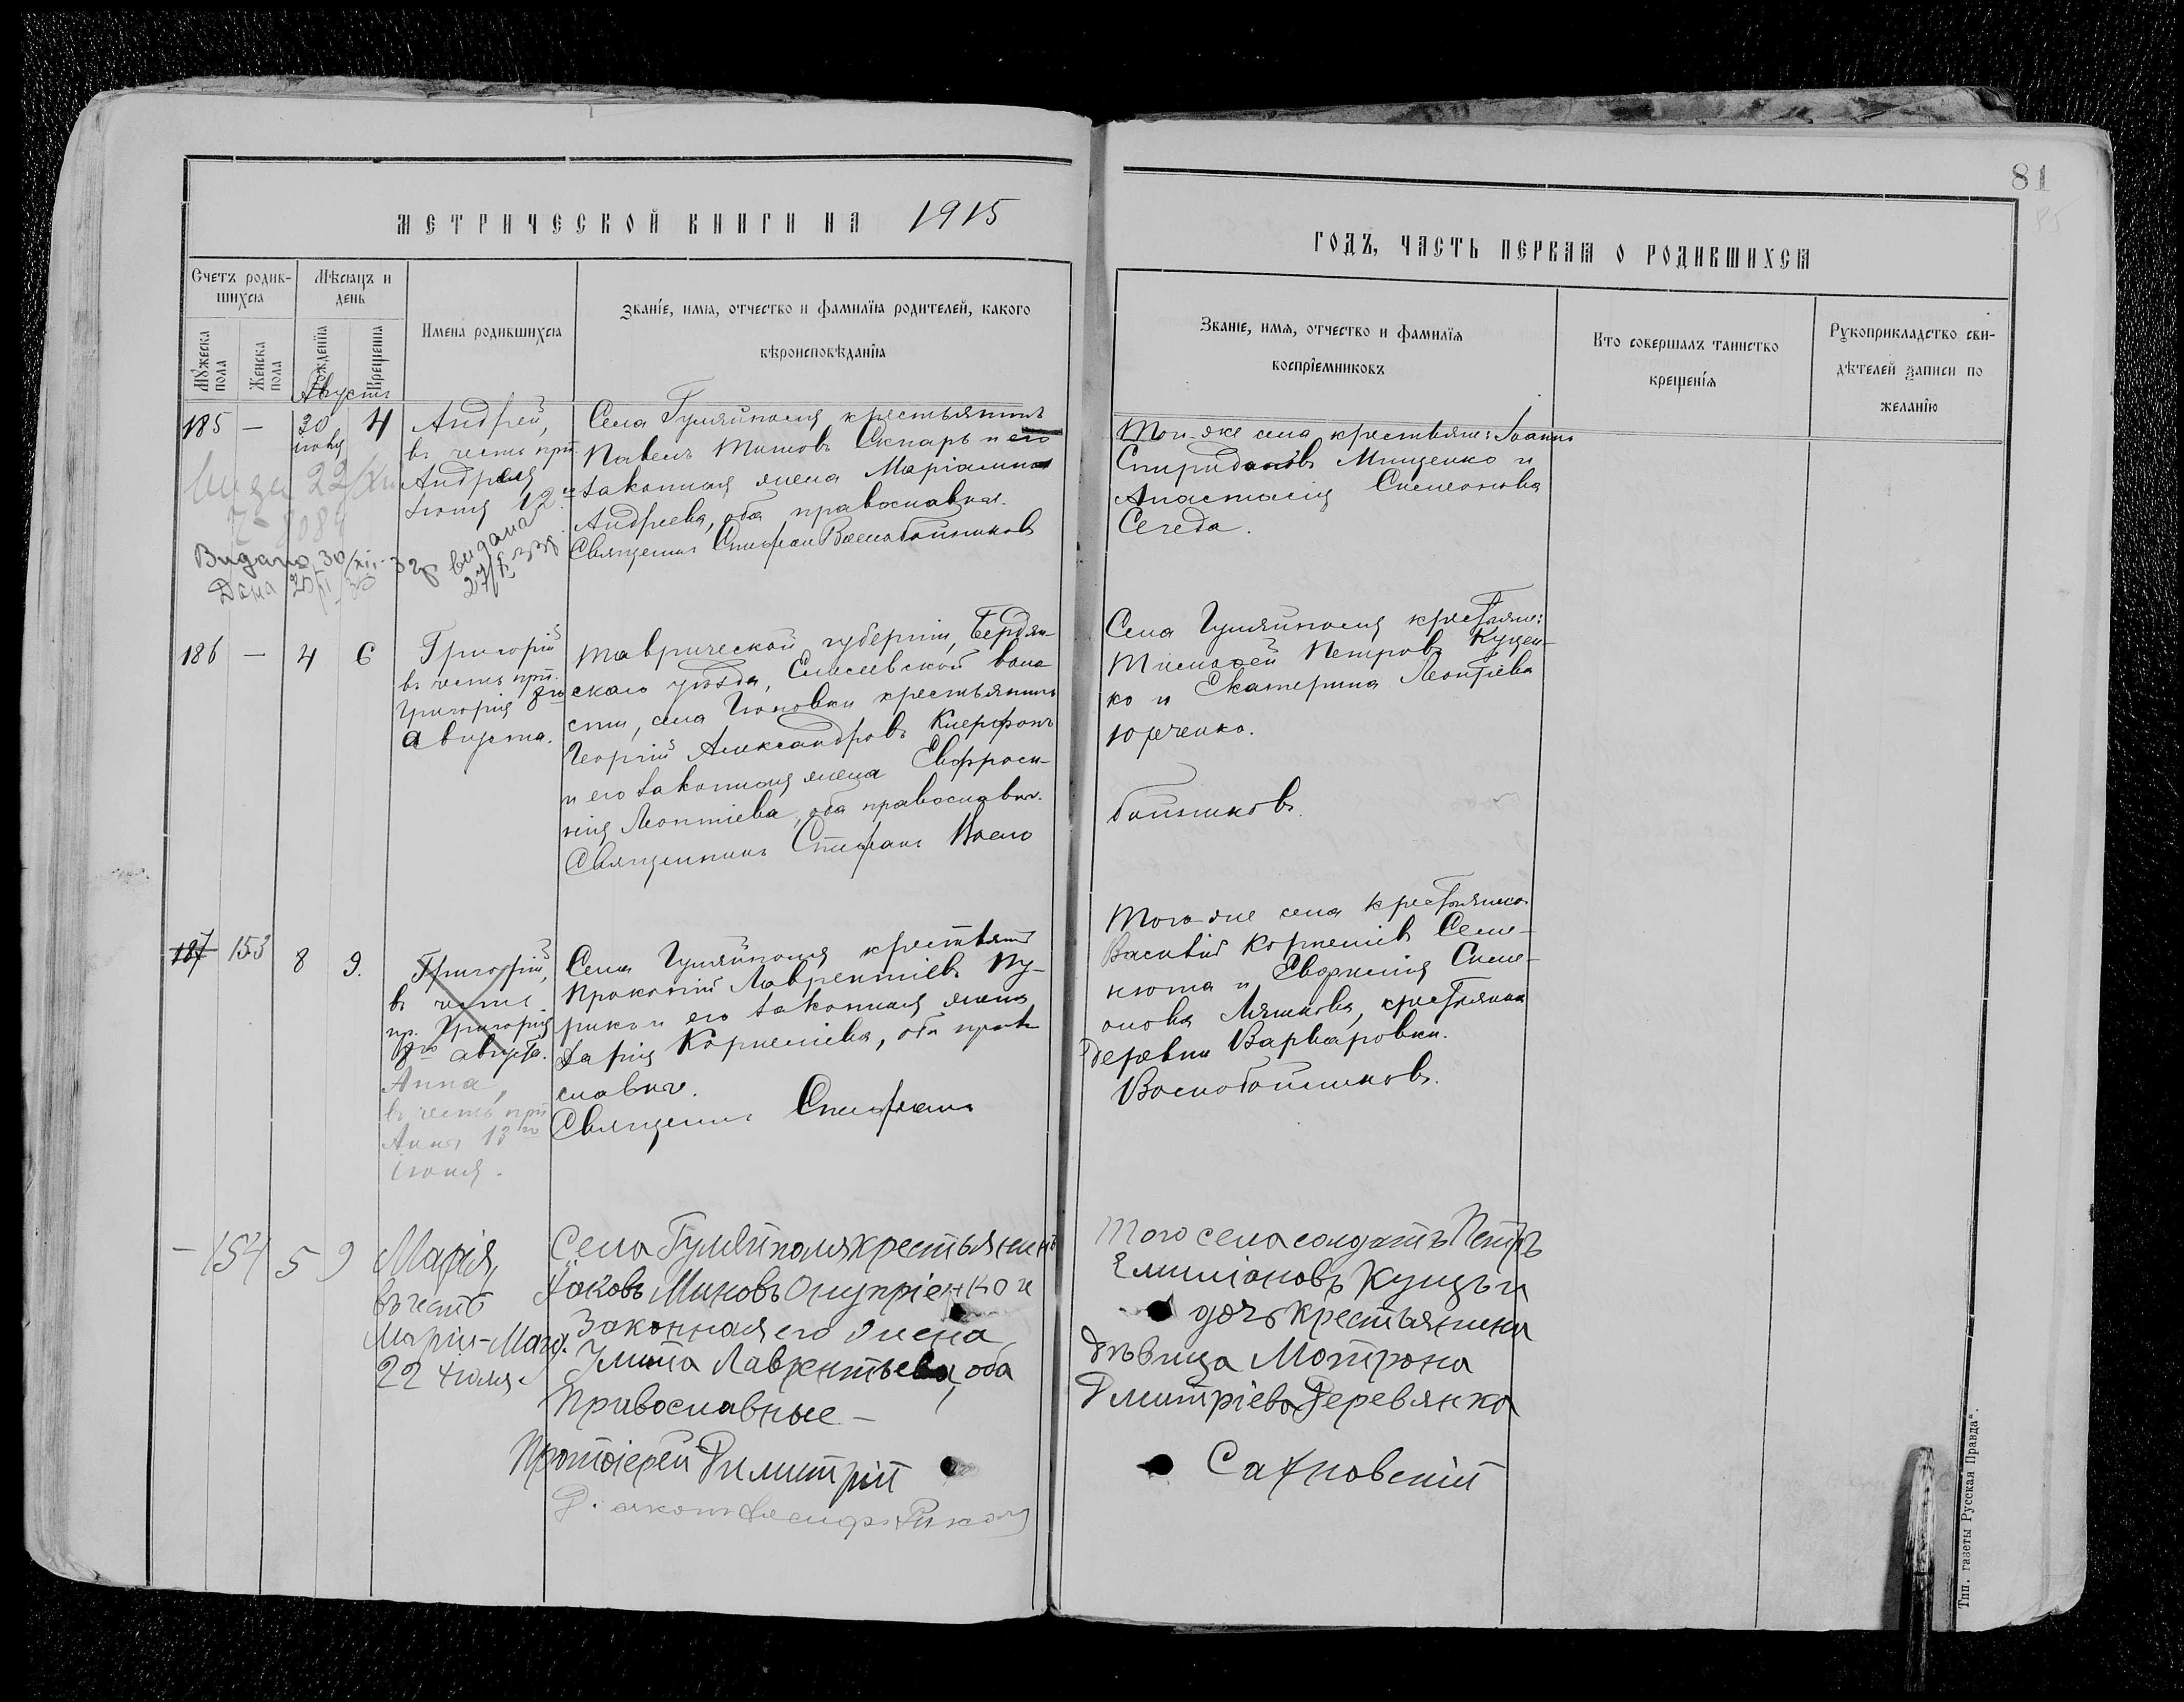 81
85
МЕТРИЧЕСКОЙ КНИГИ НА 1915
ГОДЪ, ЧАСТЬ ПЕРВАЯ О РОДИВШИХСЯ
Счетъ родив-
шихся
Мѣсяцъ и
день
Мужеска пола
Женска пола
Рожденїя
Крещенїя
Имена родившихся
Званїе, имя, отчество и фамилїя родителей, какого
вѣроисповѣданїя
Званїе, имя, отчество и фамилїя
воспрїемниковъ
Кто совершалъ таинство
крещенїя
Рукоприкладство сви-
дѣтелей записи по
желанїю
Августъ
185 — 30 4
іюля
Андрей,
въ честь прп.
Андрея
Іюня 12го
Села Гуляйполя крестьянинъ
Павелъ Титовъ Скнарь и его
законная жена Маріамна
Андреева, оба православн.
Священникъ Стефанъ Воскобойниковъ
Той-же села крестьяне: Іоаннъ
Спиридоновъ Мищенко и
Анастасія Симеонова
Середа.
22/XII
Видано 30/XII-32р видана
27/I 33р.
Дана
186 — 4 6
Григорій
въ честь прп.
Григорія 8го
августа.
Таврической губерніи, Бердян-
скаго уѣзда, Елисеевской воло-
сти, села Поповки крестьянинъ
Георгій Александровъ Ксерфонъ
и его законная жена Евфроси-
нія Леонтіева, оба православн.
Священникъ Стефанъ Воско
Села Гуляйполя крестьяне:
Тимофей Петровъ Куцен-
ко и Екатерина Леонтіева
Юрченко.
бойниковъ.
187 153 8 9.
Григорій,
въ честь
пр. Григорія
8го августа.
Анна,
въ честь прп
Анны 13го
іюня.
Села Гуляйполя крестьянинъ
Прокопій Лаврентіевъ Пу-
рико и его законная жена
Дарія Корнеліева, оба право
славн.
Священникъ Стефанъ
Того-же села крестьянинъ
Василій Корнеліевъ Семе-
нюта и Евфимія Симе-
онова Ляшкова, крестьянка
деревни Варваровки.
Воскобойниковъ.
— 154 5 9
Марія,
въ честь
Маріи-Магд.
22 Іюля.
Села Гуляйполя крестьянинъ
Іаковъ Миновъ Онупріенко и
Законная его жена
Улита Лаврентьева, оба
Православные —
Протоіерей Димитрій
Того села солдатъ Петръ
Емиліановъ Куцъ и
дочь крестьянина
дѣвица Мотрона
Дмитріева Деревянко
Сахновскій
Тип. газеты „Русская Правда“.